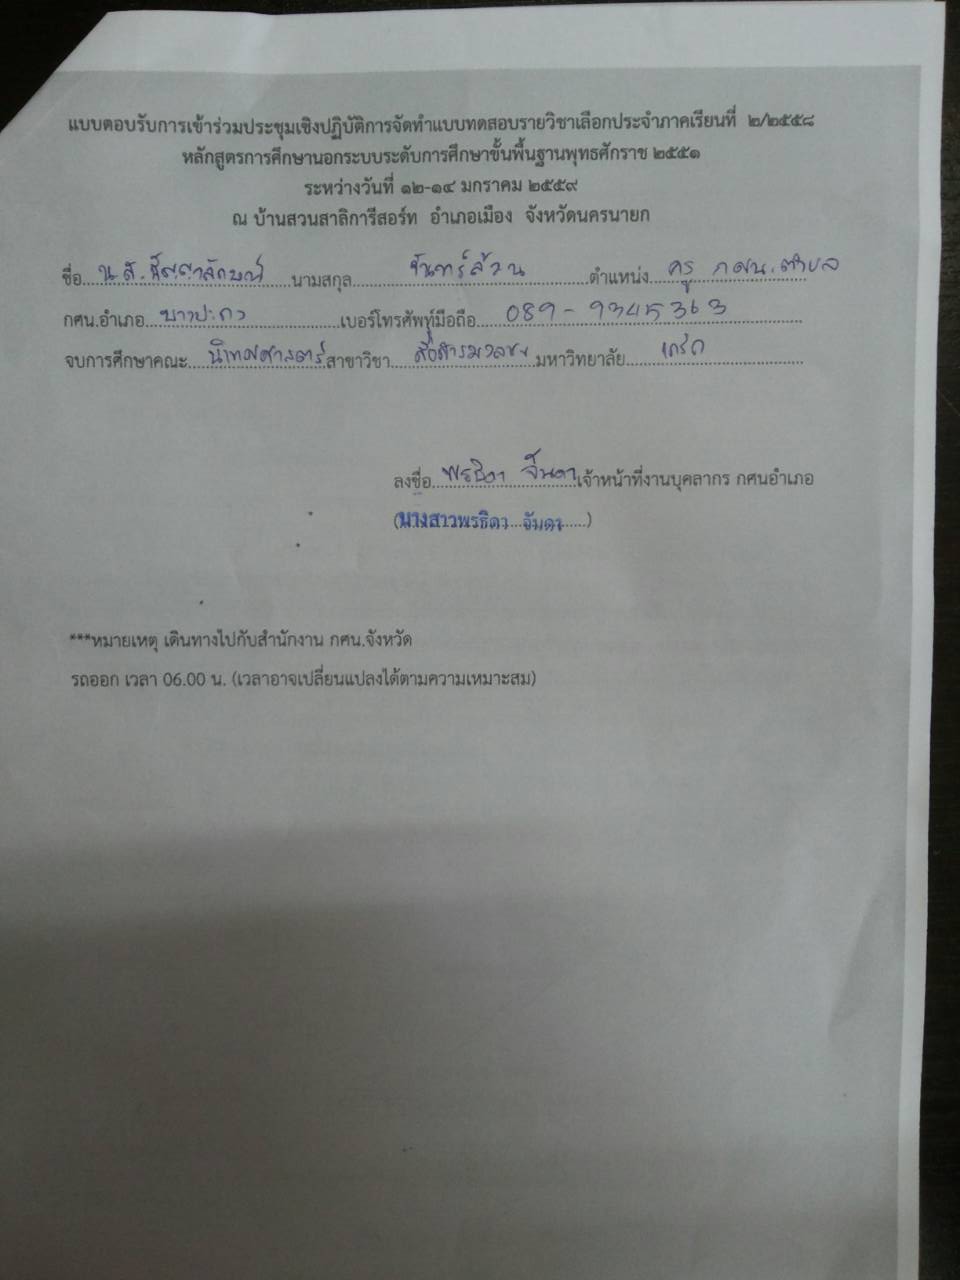 แบบตอบรับการเข้าร่วมประชุมเชิงปฏิบัติการจัดทำแบบทดสอบรายวิชาเลือกประจำภาคเรียนที่ ๒/๒๕๕๘
หลักสูตรการศึกษานอกระบบระดับการศึกษาขั้นพื้นฐานพุทธศักราช ๒๕๕๑
ระหว่างวันที่ ๑๒-๑๔ มกราคม ๒๕๕๙
ณ บ้านสวนสาลิการีสอร์ท อำเภอเมือง จังหวัดนครนายก
ชื่อ น.ส. นามสกุล จันทร์ล้วน ตำแหน่ง ครู กศน.ตำบล
กศน.อำเภอ บางปะกง เบอร์โทรศัพท์มือถือ 089-9345363
จบการศึกษาคณะ นิเทศศาสตร์ สาขาวิชา สื่อสารมวลชน มหาวิทยาลัย เกริก
ลงชื่อ พรธิดา จันดา เจ้าหน้าที่งานบุคลากร กศนอำเภอ
(นางสาวพรธิดา จันดา)
***หมายเหตุ เดินทางไปกับสำนักงาน กศน.จังหวัด
รถออก เวลา 06.00 น. (เวลาอาจเปลี่ยนแปลงได้ตามความเหมาะสม)